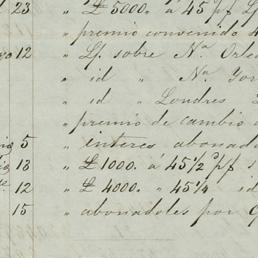 23 " £ 5000. á 45 pf
" premio convenido
12 " Lf. sobre Na Orle
" id " Na Yor
" id " Londres
" premio de cambio
5 " interes abonad
13 " £ 1000. á 45 1/2 pf s
12 " £ 4000. " 45 1/4 id
15 " abonadoles por